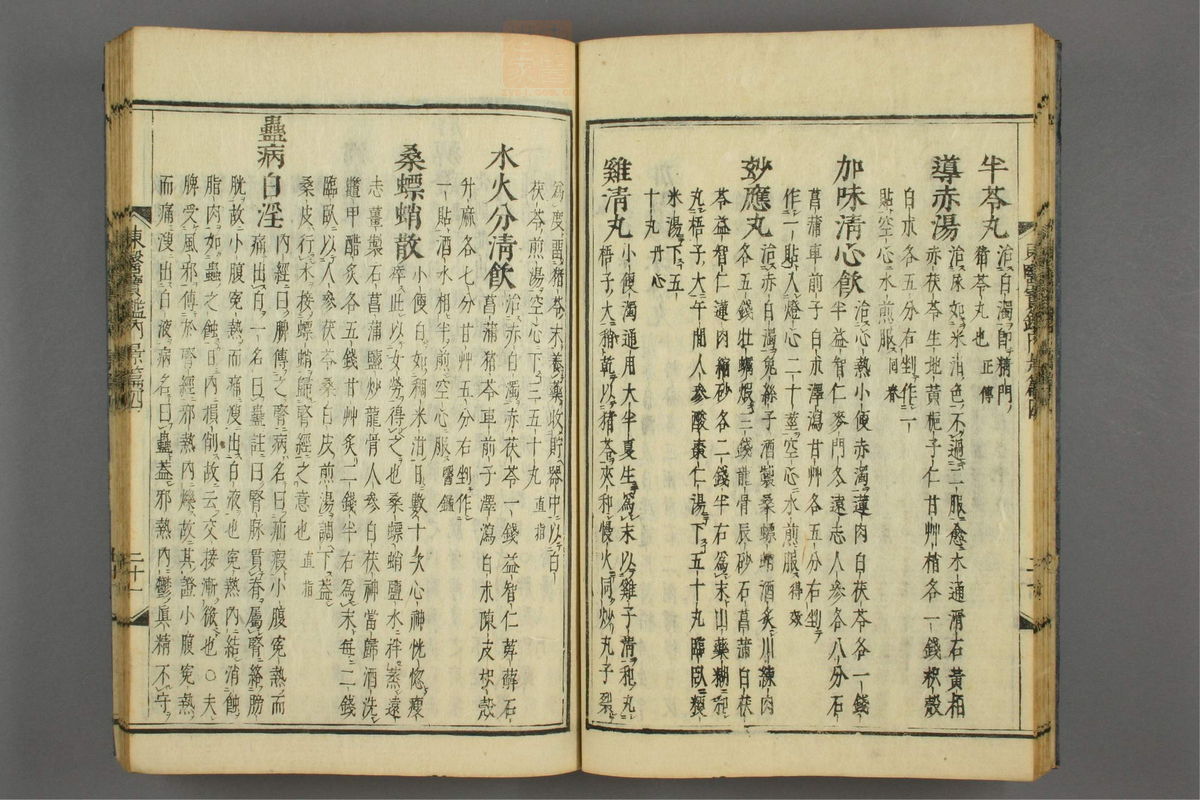 半苓丸 治白濁即精門ノ
猪苓丸也 正傳
導赤湯 治尿如米泔色不過二服愈木通滑石黃栢
赤茯苓生地黃梔子仁甘艸梢各一錢枳殼
白朮各五分右剉作一
貼空心水煎服
加味清心飮 治心熱小便赤濁蓮肉白茯苓各一錢
半益智仁麥門冬遠志人參各八分石
菖蒲車前子白朮澤瀉甘艸各五分右剉
作一貼入燈心二十莖空心水煎服 得效
妙應丸 治赤白濁兔絲子酒製桑螵蛸酒炙川練肉
各五錢牡蠣煆三錢龍骨辰砂石菖蒲白茯
苓益智仁蓮肉縮砂各二錢半右爲末山藥糊和
丸梧子大午間人參酸棗仁湯下五十丸臨臥糯
米湯下五
十丸 丹心
雞清丸 小便濁通用大半夏生爲末以雞子清和丸
梧子大稍乾以猪苓夾和慢火同炒丸子裂
爲度留猪苓末養藥收貯器中以白
茯苓煎湯空心下三五十丸 直指
水火分清飮 治赤白濁赤茯苓一錢益智仁萆薢石
菖蒲猪苓車前子澤瀉白朮陳皮枳殼
升麻各七分甘艸五分右剉作
一貼酒水相半煎空心服 醫鑑
桑螵蛸散 小便白如稠米泔日數十次心神恍惚瘦
瘁此以女勞得之也桑螵蛸鹽水拌蒸遠
志薑製石菖蒲鹽炒龍骨人參白茯神當歸酒洗
鱉甲醋炙各五錢甘艸炙二錢半右爲末每二錢
臨臥以人參茯苓桑白皮煎湯調下盖
桑皮行水接螵蛸歸腎經之意也 直指
蠱病白淫 內經曰脾傳之腎病名曰疝瘕小腹寃熱而
痛出白一名曰蠱註曰腎脉貫脊屬腎絡膀
胱故小腹寃熱而痛溲出白液也寃熱內結消蝕
脂肉如蟲之蝕日內損削故云交接漸微也○夫
脾受風邪傳於腎經邪熱內爍故其證小腹寃熱
而痛溲出白液病名曰蠱盖邪熱內鬱眞精不守
東醫寶鑑內景篇四
二十一